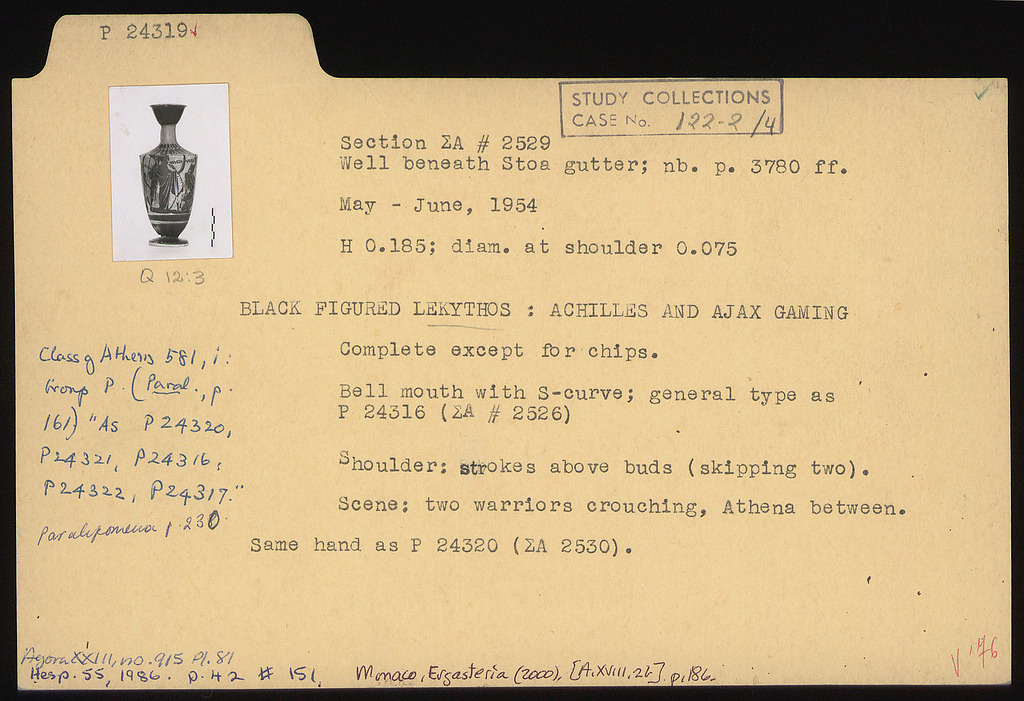 P 24319
STUDY COLLECTIONS
CASE No. 122-2/4
Section ΣA # 2529
Well beneath Stoa gutter; nb. p. 3780 ff.
May - June, 1954
H 0.185; diam. at shoulder 0.075
Q 12:3
BLACK FIGURED LEKYTHOS : ACHILLES AND AJAX GAMING
Complete except for chips.
Bell mouth with S-curve; general type as
P 24316 (ΣA # 2526)
Shoulder: strokes above buds (skipping two).
Scene; two warriors crouching, Athena between.
Same hand as P 24320 (ΣA 2530).
Class of Athens 581, i:
Group P. (Paral., p.
161) "As P24320,
P24321, P24316,
P24322, P24317."
Paralipomena p. 230.
Agora XXIII, no. 915 Pl. 81
Hesp. 55, 1986. p. 42 # 151.
Monaco, Ergasteria (2000), [A.XVIII.26] p. 186.
V '76